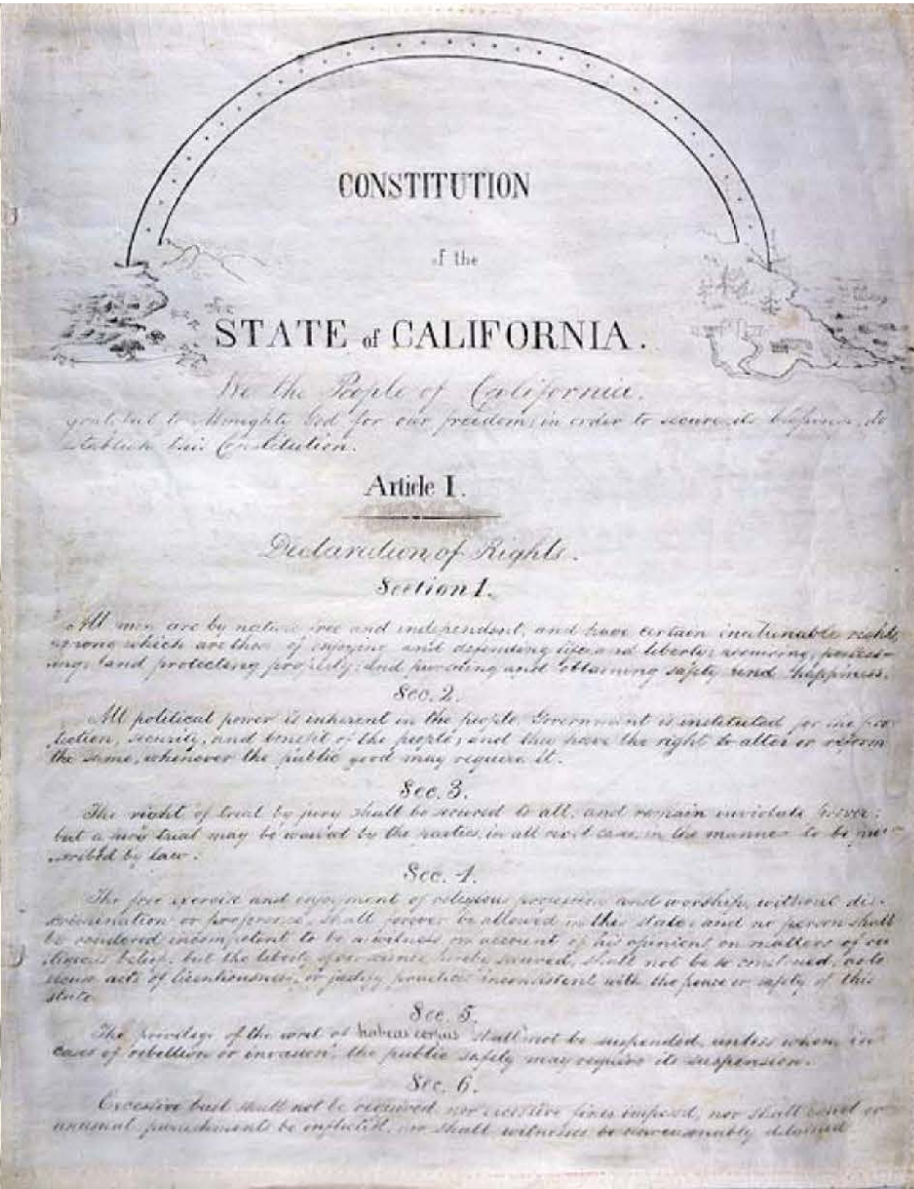 CONSTITUTION
of the
STATE of CALIFORNIA.
We the People of California,
grateful to Almighty God for our freedom, in order to secure its blessings, do
establish this Constitution.
Article I.
Declaration of Rights.
Section 1.
All men are by nature free and independent, and have certain inalienable rights,
among which are those of enjoying and defending life and liberty; acquiring, possess-
ing, and protecting property; and pursuing and obtaining safety and happiness.
Sec. 2.
All political power is inherent in the people. Government is instituted for the pro-
tection, security, and benefit of the people; and they have the right to alter or reform
the same, whenever the public good may require it.
Sec. 3.
The right of trial by jury shall be secured to all, and remain inviolate forever;
but a jury trial may be waived by the parties, in all civil cases, in the manner to be pre-
scribed by law.
Sec. 4.
The free exercise and enjoyment of religious profession and worship, without dis-
crimination or preference, shall forever be allowed in this state; and no person shall
be rendered incompetent to be a witness on account of his opinions on matters of re-
ligious belief; but the liberty of conscience hereby secured, shall not be so construed, as to
excuse acts of licentiousness, or justify practices inconsistent with the peace or safety of this
state.
Sec. 5.
The privilege of the writ of habeas corpus shall not be suspended, unless when, in
cases of rebellion or invasion, the public safety may require its suspension.
Sec. 6.
Excessive bail shall not be required, nor excessive fines imposed, nor shall cruel or
unusual punishments be inflicted, nor shall witnesses be unreasonably detained